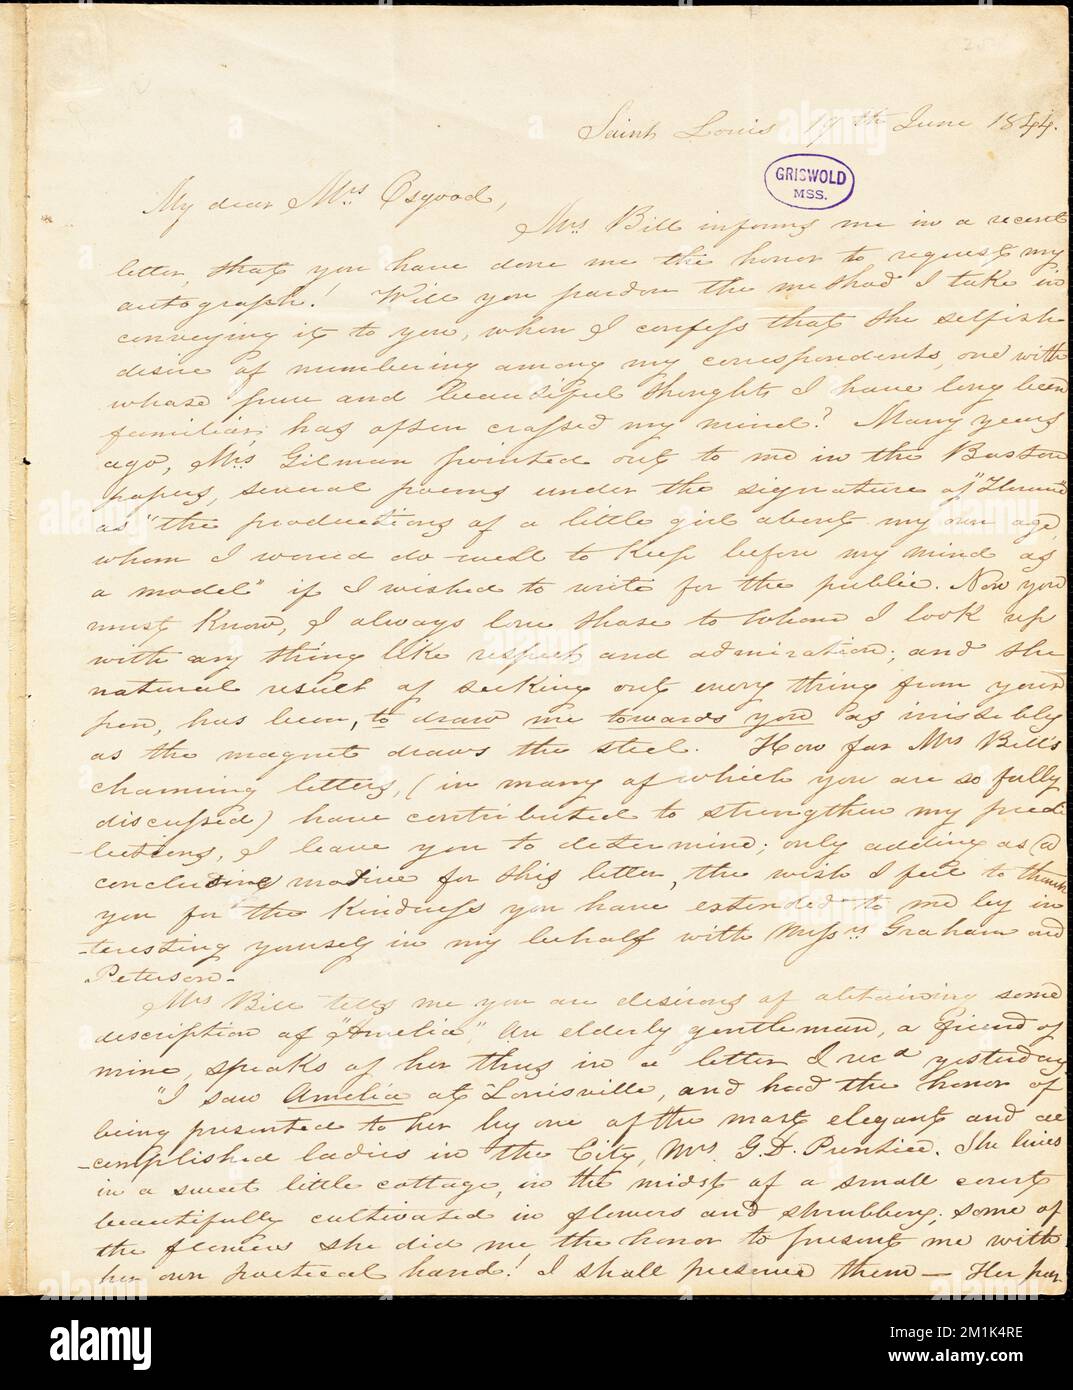 Saint Louis 19th June 1844.
GRISWOLD
MSS.
My dear Mrs. Osgood,
Mrs. Bill informs me in a recent
letter, that you have done me the honor to request my
autograph! Will you pardon the method I take in
conveying it to you, when I confess that the selfish
desire of numbering among my correspondents, one with
whose pure and beautiful thoughts I have long been
familiar, has often crossed my mind? Many years
ago, Mrs. Gilman pointed out to me in the Boston
papers, several poems under the signature of "Florence"
as "the productions of a little girl about my own age,
whom I would do well to keep before my mind as
a model" if I wished to write for the public. Now you
must know, I always love those to whom I look up
with any thing like respect and admiration; and the
natural result of seeking out every thing from your
pen, has been, to draw me towards you as invisibly
as the magnet draws the steel. How far Mrs Bill's
charming letters, (in many of which you are so fully
discussed) have contributed to strengthen my predi-
-lections, I leave you to determine; only adding as a
concluding motive for this letter, the wish I feel to thank
you for the kindness you have extended to me by in-
-teresting yourself in my behalf with Messrs Graham and
Peterson-
Mrs Bill tells me you are desirous of obtaining some
description of "Amelia". An elderly gentleman, a friend of
mine, speaks of her thus in a letter I recd yesterday
"I saw Amelia at Louisville, and had the honor of
being presented to her by one of the most elegant and ac-
-complished ladies in the City, Mrs. G. D. Prentice. She lives
in a sweet little cottage, in the midst of a small court
beautifully cultivated in flowers and shrubbery; some of
the flowers she did me the honor to present me with
her own poetical hand! I shall preserve them — Her per-
alamy
Image ID: 2M1K4RE
www.alamy.com